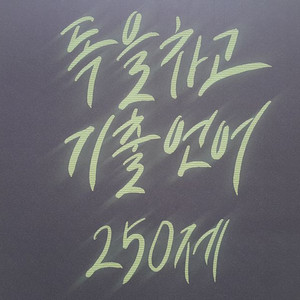 독을차고
기출언어
250제